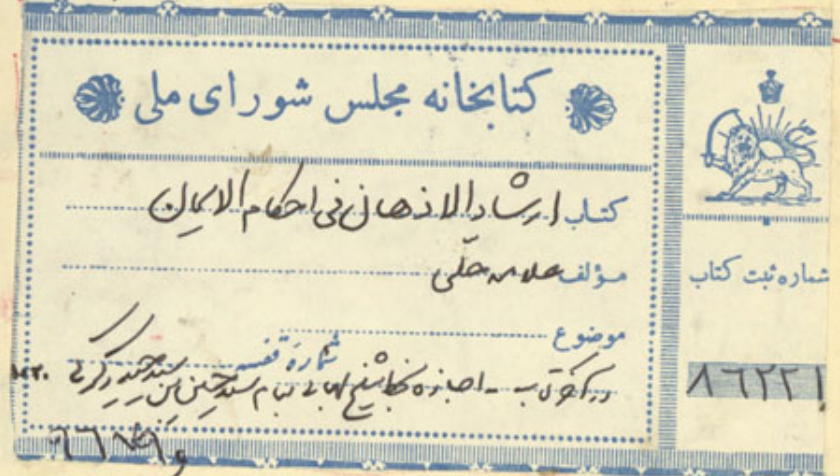 کتابخانه مجلس شورای ملی
کتاب ارشاد الاذهان فی احکام الایمان
مؤلف علامه حلی
موضوع
شماره قفسه
در آخر کتاب - اجازه بخط شیخ بهائی بنام سید حسین بن سید حیدر کرکی
شماره ثبت کتاب
۸۶۲۲۱